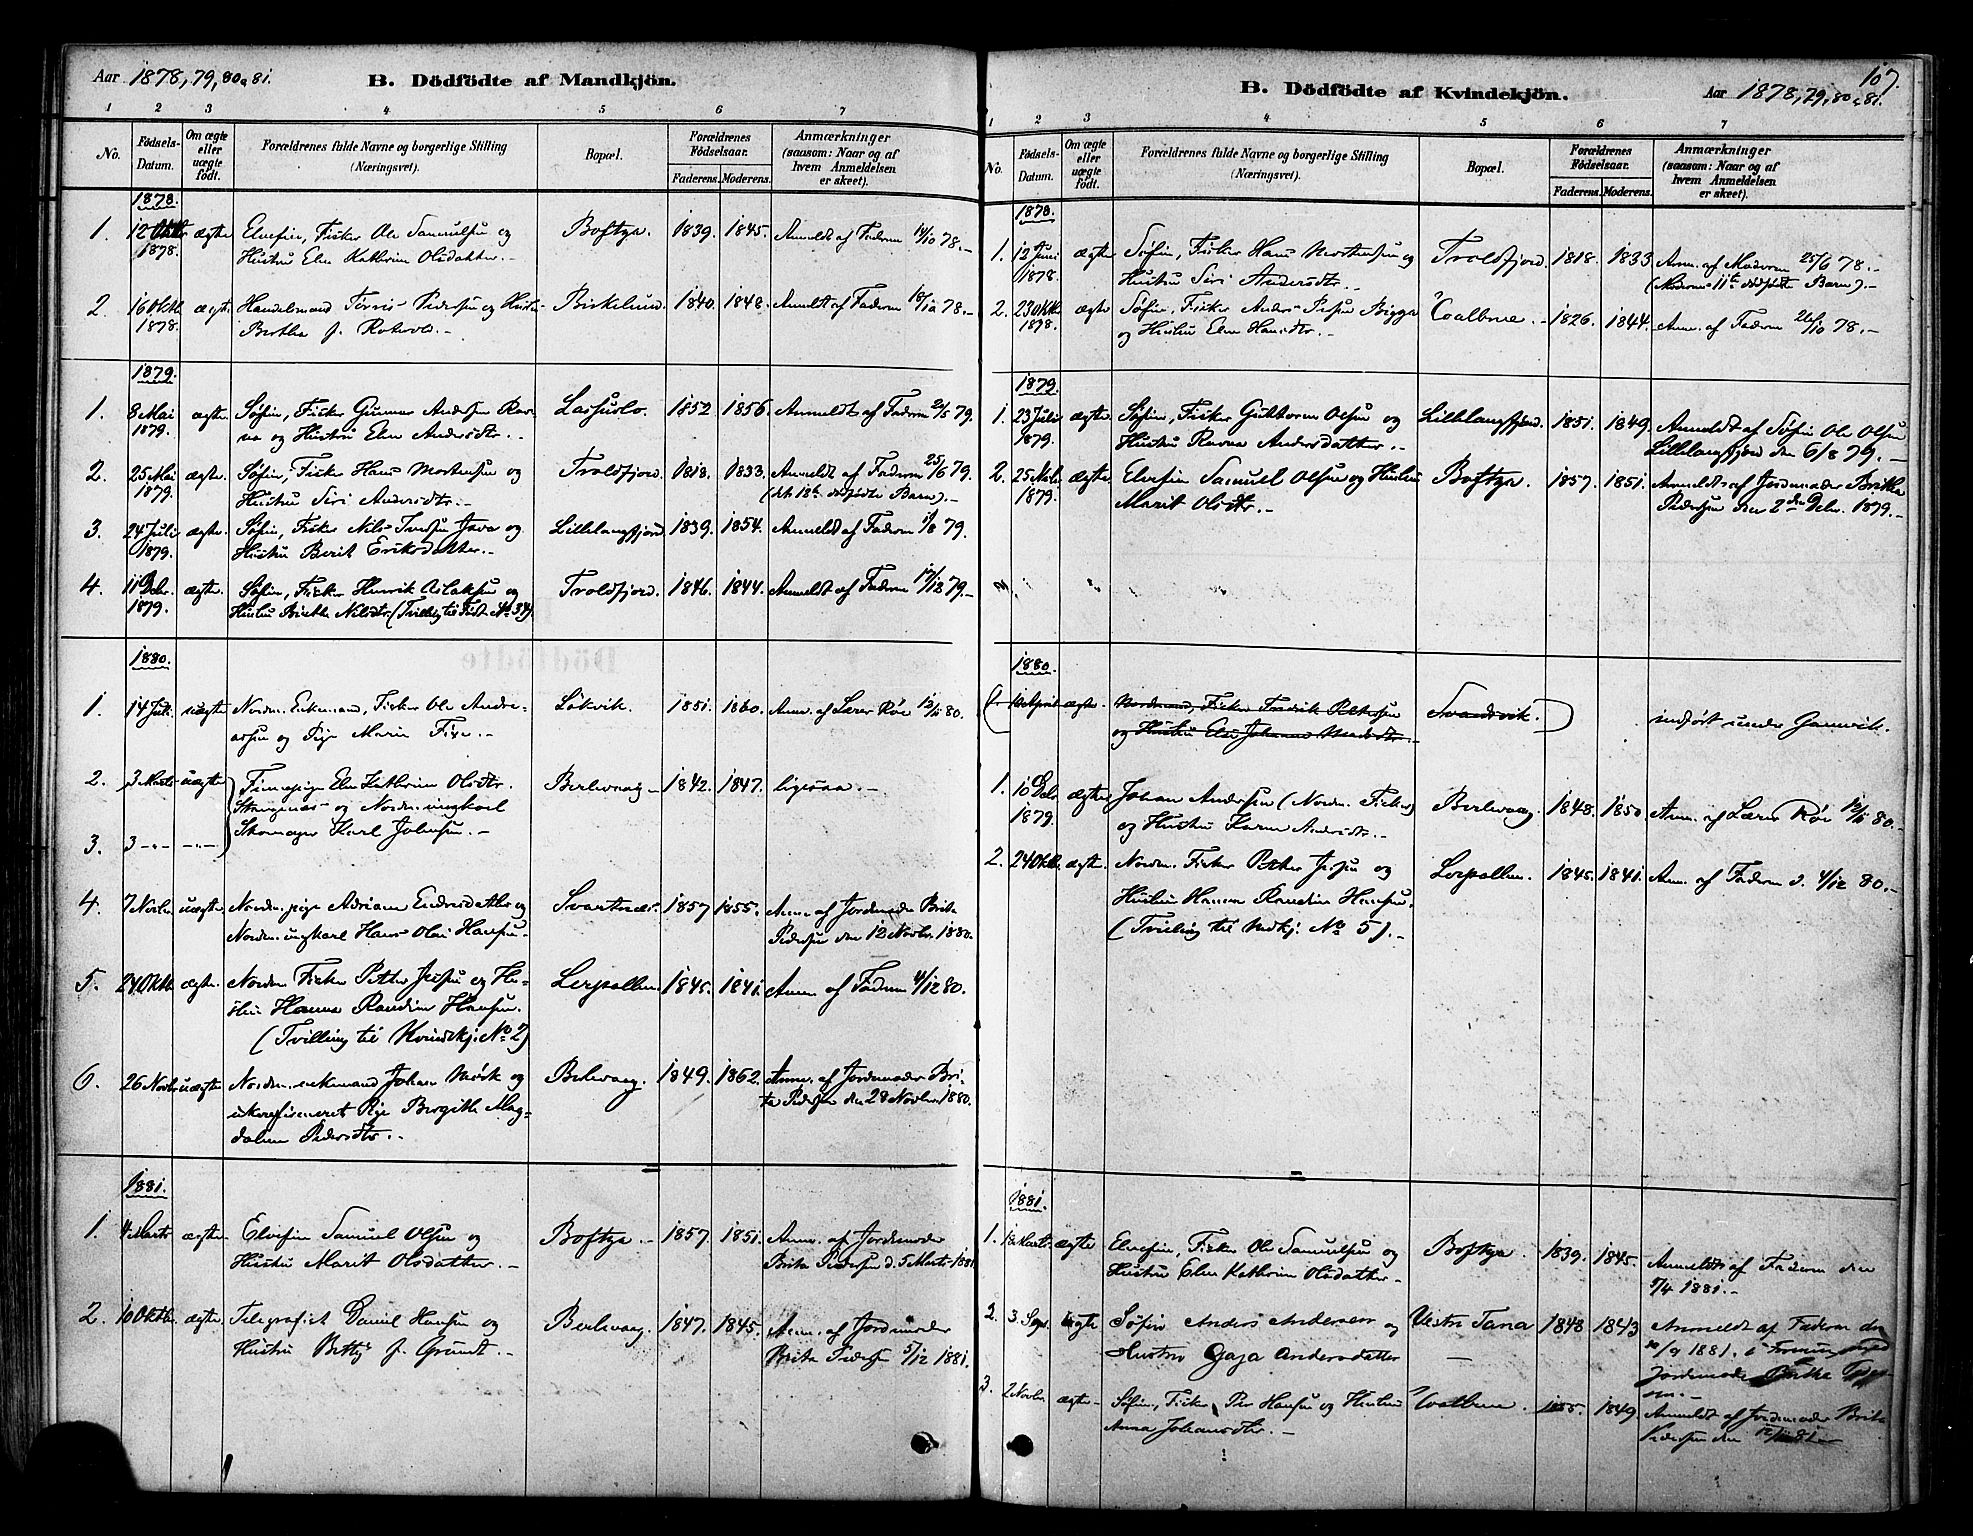 Aar 1878, 79, 80 & 81.
B. Dödfödte af Mandkjön.
1 2 3 4 5 6 7
No.
Fødsels-Datum.
Om ægte eller uægte født.
Forældrenes fulde Navne og borgerlige Stilling
(Næringsvei).
Bopæl.
Forældrenes Fødselsaar.
Faderens. Moderens.
Anmærkninger
(saasom: Naar og af
hvem Anmeldelsen
er skeet).
1878.
1. 12 Oktbr ægte Elvefin, Fisker Ole Samuelsen og Boftza. 1839. 1845. Anmeldt af Faderen 14/10 78.-
1878. Hustru Elen Kathrine Olsdatter.-
2. 16 Oktb. ægte Handelsmand Pedersen og Hustru Birkelund. 1840. 1848. Anmeldt af Faderen 18/10 78.-
1878. Bertha f.
1879.
1. 8 Mai ægte. Søfin, Fisker Gunnar Andersen 1852 1856. Anmeldt af Faderen 21/5 79.
1879. og Hustru Elen Andersdtr.-
2. 25 Mai ægte. Søfin, Fisker Hans Mortensen og Troldfjord. 1818. 1833. Anmeldt af Faderen 25/6 79.
1879. Hustru Siri Andersdtr.- (det 12te dødfødte Barn).-
3. 24 Juli ægte. Søfin, Fisker Nils Iversen og Lillelangfjord 1839. 1854. Anmeldt af Faderen 1/8 79.
1879. Hustru Berit Eriksdatter.-
4. 11 Debr. ægte. Søfin, Fisker Henrik Aslaksen og Troldfjord. 1846. 1844. Anmeldt af Faderen 17/12 79.-
1879. Hustru Nilsdtr. (Tvilling til Født No 34).
1880.
1. 14 Juli. uægte Nordm. Enkemand, Fisker Ole Andre- Løkvik. 1851. 1860. Anm. af Lærer Røie 12/5 80.
assen og Pige Maria
2. 3 Marts uægte Finnepige Elen Kathrine Olsdtr. Berlevaag - 1842. 1847. ligesaa.-
og Nordm. ungkarl
3. 3 -"- -"- Skomager Karl Johnsen.-
4. 7 Novbr. uægte. Nordm. pige Adriane og Svartnæs. 1857 1855. Anm. af Jordemoder Brita
Nordm. ungkarl Hans Olai Hansen.- Pedersen den 12 Novbr. 1880.
5. 24 Oktb. ægte. Nordm. Fisker Petter Jessen og Hu- Leirpollen. 1845. 1841. Anm. af Faderen 4/12 80.
stru Hanna Randine Hansen.
(Tvilling til Kvindekj. No 2)
6. 26 Novbr uægte Nordm. enkemand Johan Mørk og Berlevaag. 1849. 1862. Anm. af Jordemoder Bri-
ukonfirmeret Pige Birgithe Mag- ta Pedersen den 28 Novbr 1880.
dalena Pedersdtr.-
1881.
1. 4 Marts ægte Elvefin Samuel Olsen og Boftza.- 1857. 1851. Anm. af Jordemoder
Hustru Marit Olsdatter.- Brita Pedersen d. 5 Marts 1881
2. 10 Oktbr. ægte. Telegrafist Daniel Hansen og Berlevaag. 1847. 1845. Anm. af Jordemoder
Hustru Betty f. Grundt.- Brita Pedersen 5/12 1881.
B. Dödfödte af Kvindekjön.
Aar 1878, 79, 80 & 81.
107.
1 2 3 4 5 6 7
No.
Fødsels-Datum.
Om ægte eller uægte født.
Forældrenes fulde Navne og borgerlige Stilling
(Næringsvei).
Bopæl.
Forældrenes Fødselsaar.
Faderens. Moderens.
Anmærkninger
(saasom: Naar og af
hvem Anmeldelsen
er skeet).
1878.
1. 12 Juni ægte Søfin, Fisker Hans Mortensen og Troldfjord. 1818. 1833 Anm. af Moderen 25/6 78.-
1878. Hustru Siri Andersdtr.- (Moderens 11te dødfødte Barn).-
2. 23 Oktb. ægte. Søfin, Fisker Anders Persen Bigga 1826. 1844. Anm. af Faderen 26/10 78.-
1878. og Hustru Elen Hansdtr.-
1879.
1. 23 Juli ægte. Søfin, Fisker Guttorm Olsen og Lillelangfjord. 1851. 1849. Anmeldt af Søfin Ole Olsen
1879. Hustru Ravna Andersdatter.- Lillelangfjord den 6/8 79.-
2. 25 Novbr. ægte. Elvefin Samuel Olsen og Hustru Boftza. 1857. 1851. Anmeldt af Jordemoder Britha
1879. Marit Olsdtr.- Pedersen den 2den Debr. 1879.-
1880.
(1. April ægte. Nordmand, Fisker Fredrik Pettersen Svandsvik.) indført under Gamvik.
og Hustru Else Johanne
1. 10 Debr. ægte. Johan Andersen (Nordm. Fisker) Berlevaag. 1848. 1850. Anm. af Lærer Røie 12/5 80.-
1879. og Hustru Karen Andersdtr.-
2. 24 Oktb. ægte. Nordm. Fisker Petter Jessen og Leirpollen. 1845. 1841. Anm. af Faderen d. 4/12 80.-
Hustru Hanna Randine Hansen.
(Tvilling til Mandkj. No 5).-
1881.
1. Marts ægte Elvefin, Fisker Ole Samuelsen og Boftza. 1839. 1845. Anmeldt af Faderen den
Hustru Elen Kathrine Olsdatter.- 1/4 1881.-
2. 3. Sept. ægte Søfin Anders Andersen og Vestre Tana 1848 1843 Anmeldt af Faderen den
Hustru Gaja Andersdatter /9 1881.
Jordemoder
3. 2 Novbr. ægte- Søfin, Fisker Per Hansen og Hustru 1855. 1849 Anmeldt af Jordemoder Brita
Anna Johansdtr.- Pedersen den 12/11 81.-